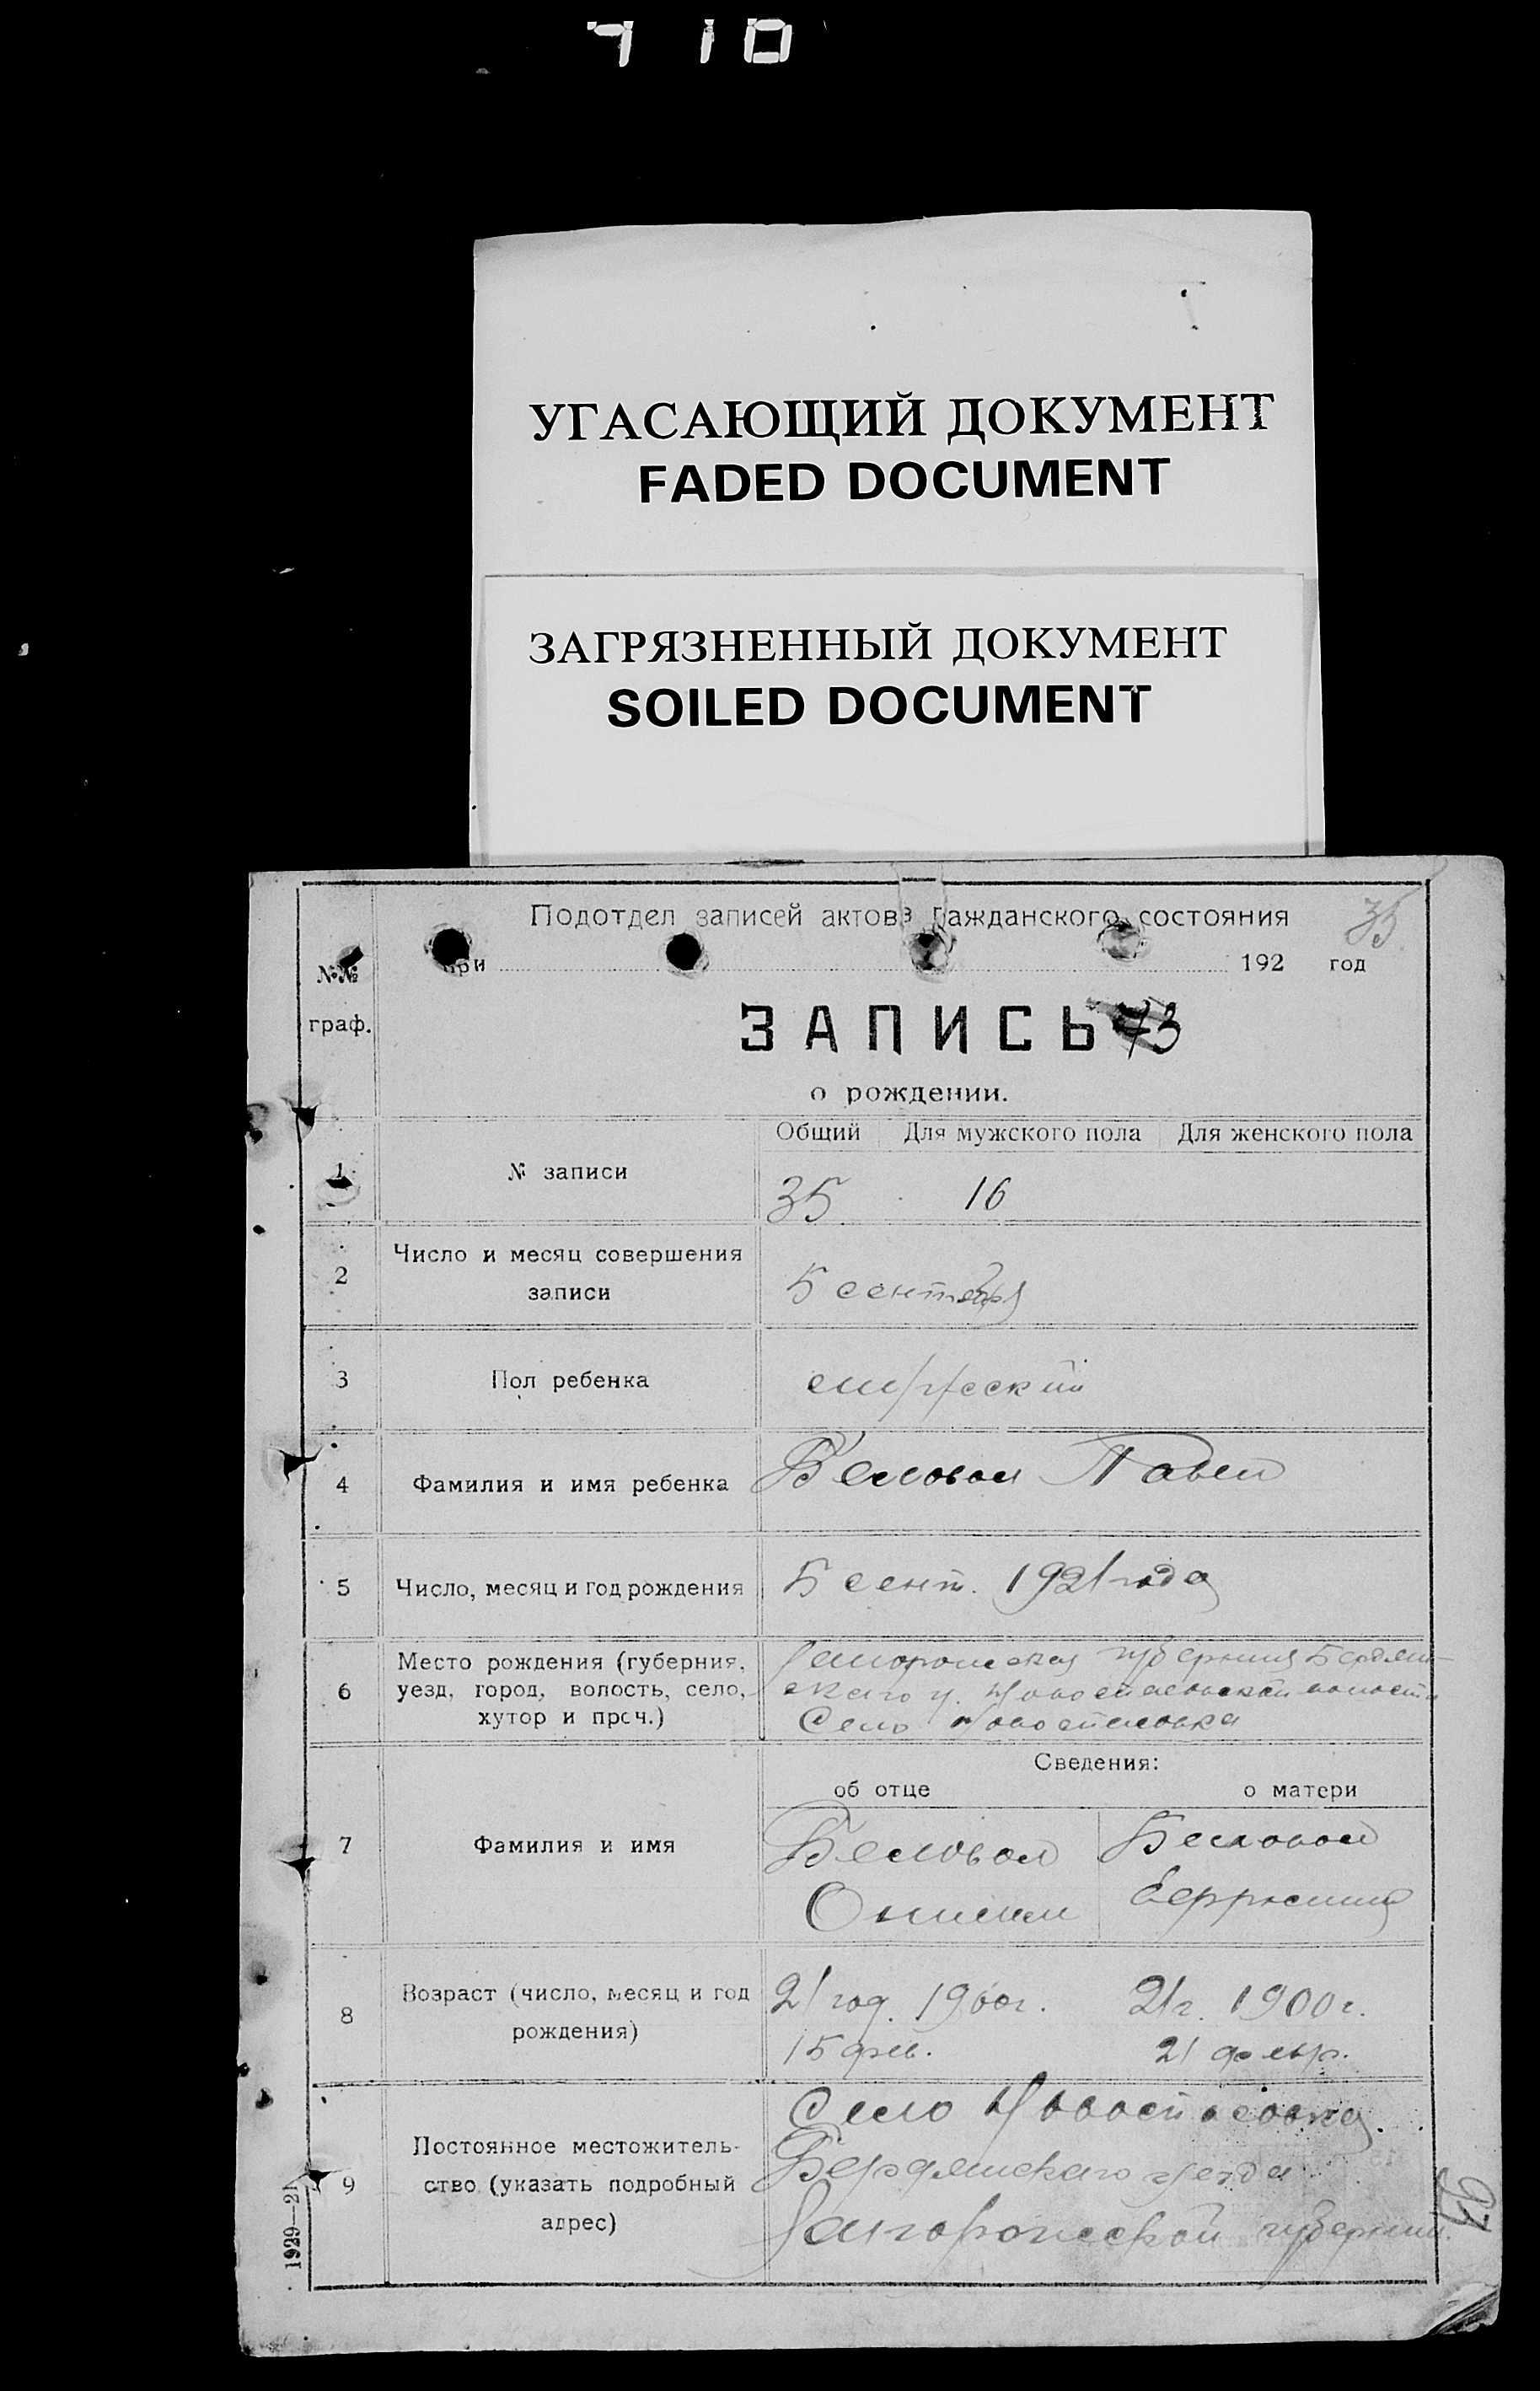 710
УГАСАЮЩИЙ ДОКУМЕНТ
FADED DOCUMENT
ЗАГРЯЗНЕННЫЙ ДОКУМЕНТ
SOILED DOCUMENT
Подотдел записей актов гражданского состояния 35
№№ при 192 год
граф.
ЗАПИСЬ 73
о рождении.
Общий Для мужского пола Для женского пола
1 № записи 35 16
2 Число и месяц совершения
записи 5 сентября
3 Пол ребенка мужеский
4 Фамилия и имя ребенка Беловол Павел
5 Число, месяц и год рождения 5 сент. 1921 года
Место рождения (губерния, Запорожская губерния Бердян-
6 уезд, город, волость, село, скаго у. Новоспасовской волости
хутор и проч.) Село Новоспасовка
Сведения:
об отце о матери
7 Фамилия и имя Беловол Беловол
Онисим
Возраст (число, месяц и год 21 год. 1900г. 21г. 1900г.
8 рождения) 15 фев. 21 февр.
Село Новоспасовка.
Постоянное местожитель- Бердянскаго уезда
9 ство (указать подробный
адрес) Запорожской губернии.
1939—21